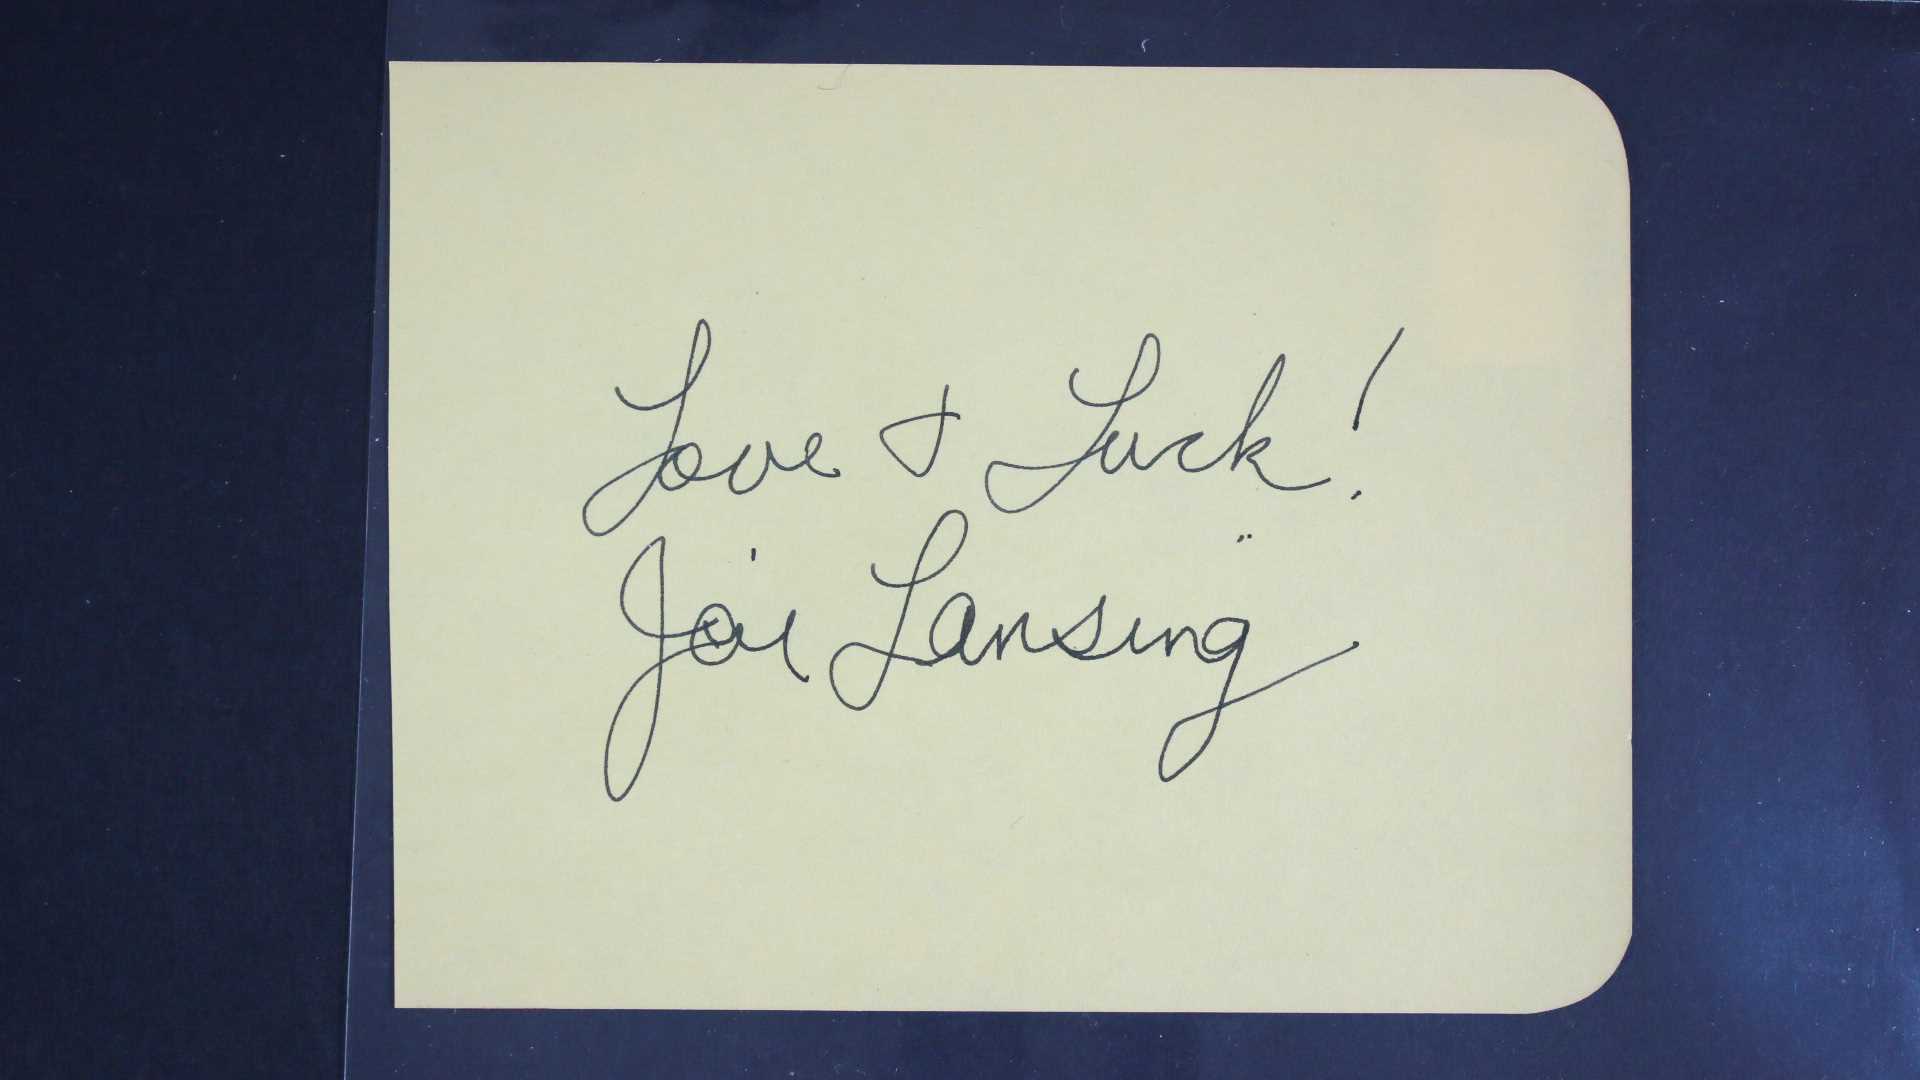 Love & Luck!
Joi Lansing